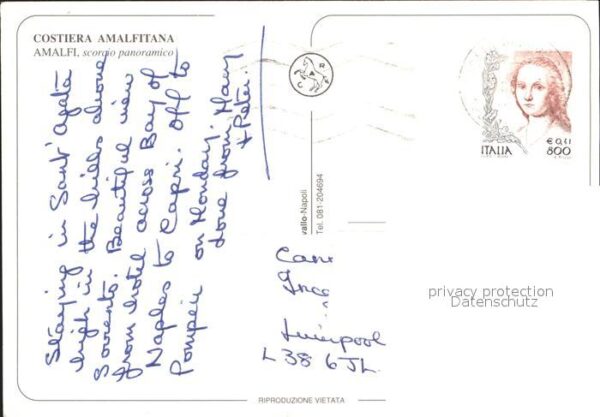 COSTIERA AMALFITANA
AMALFI, scorcio panoramico
Staying in Sant' Agata
high in the hills above
Sorrento. Beautiful view
from hotel across Bay of
Naples to Capri. Off to
Pompeii on Monday.
Love from Mary
+ Peter.
C A R
vallo-Napoli
Tel. 081-204694
ITALIA € 0,41
800
Liverpool
L38 6JL.
privacy protection
Datenschutz
RIPRODUZIONE VIETATA